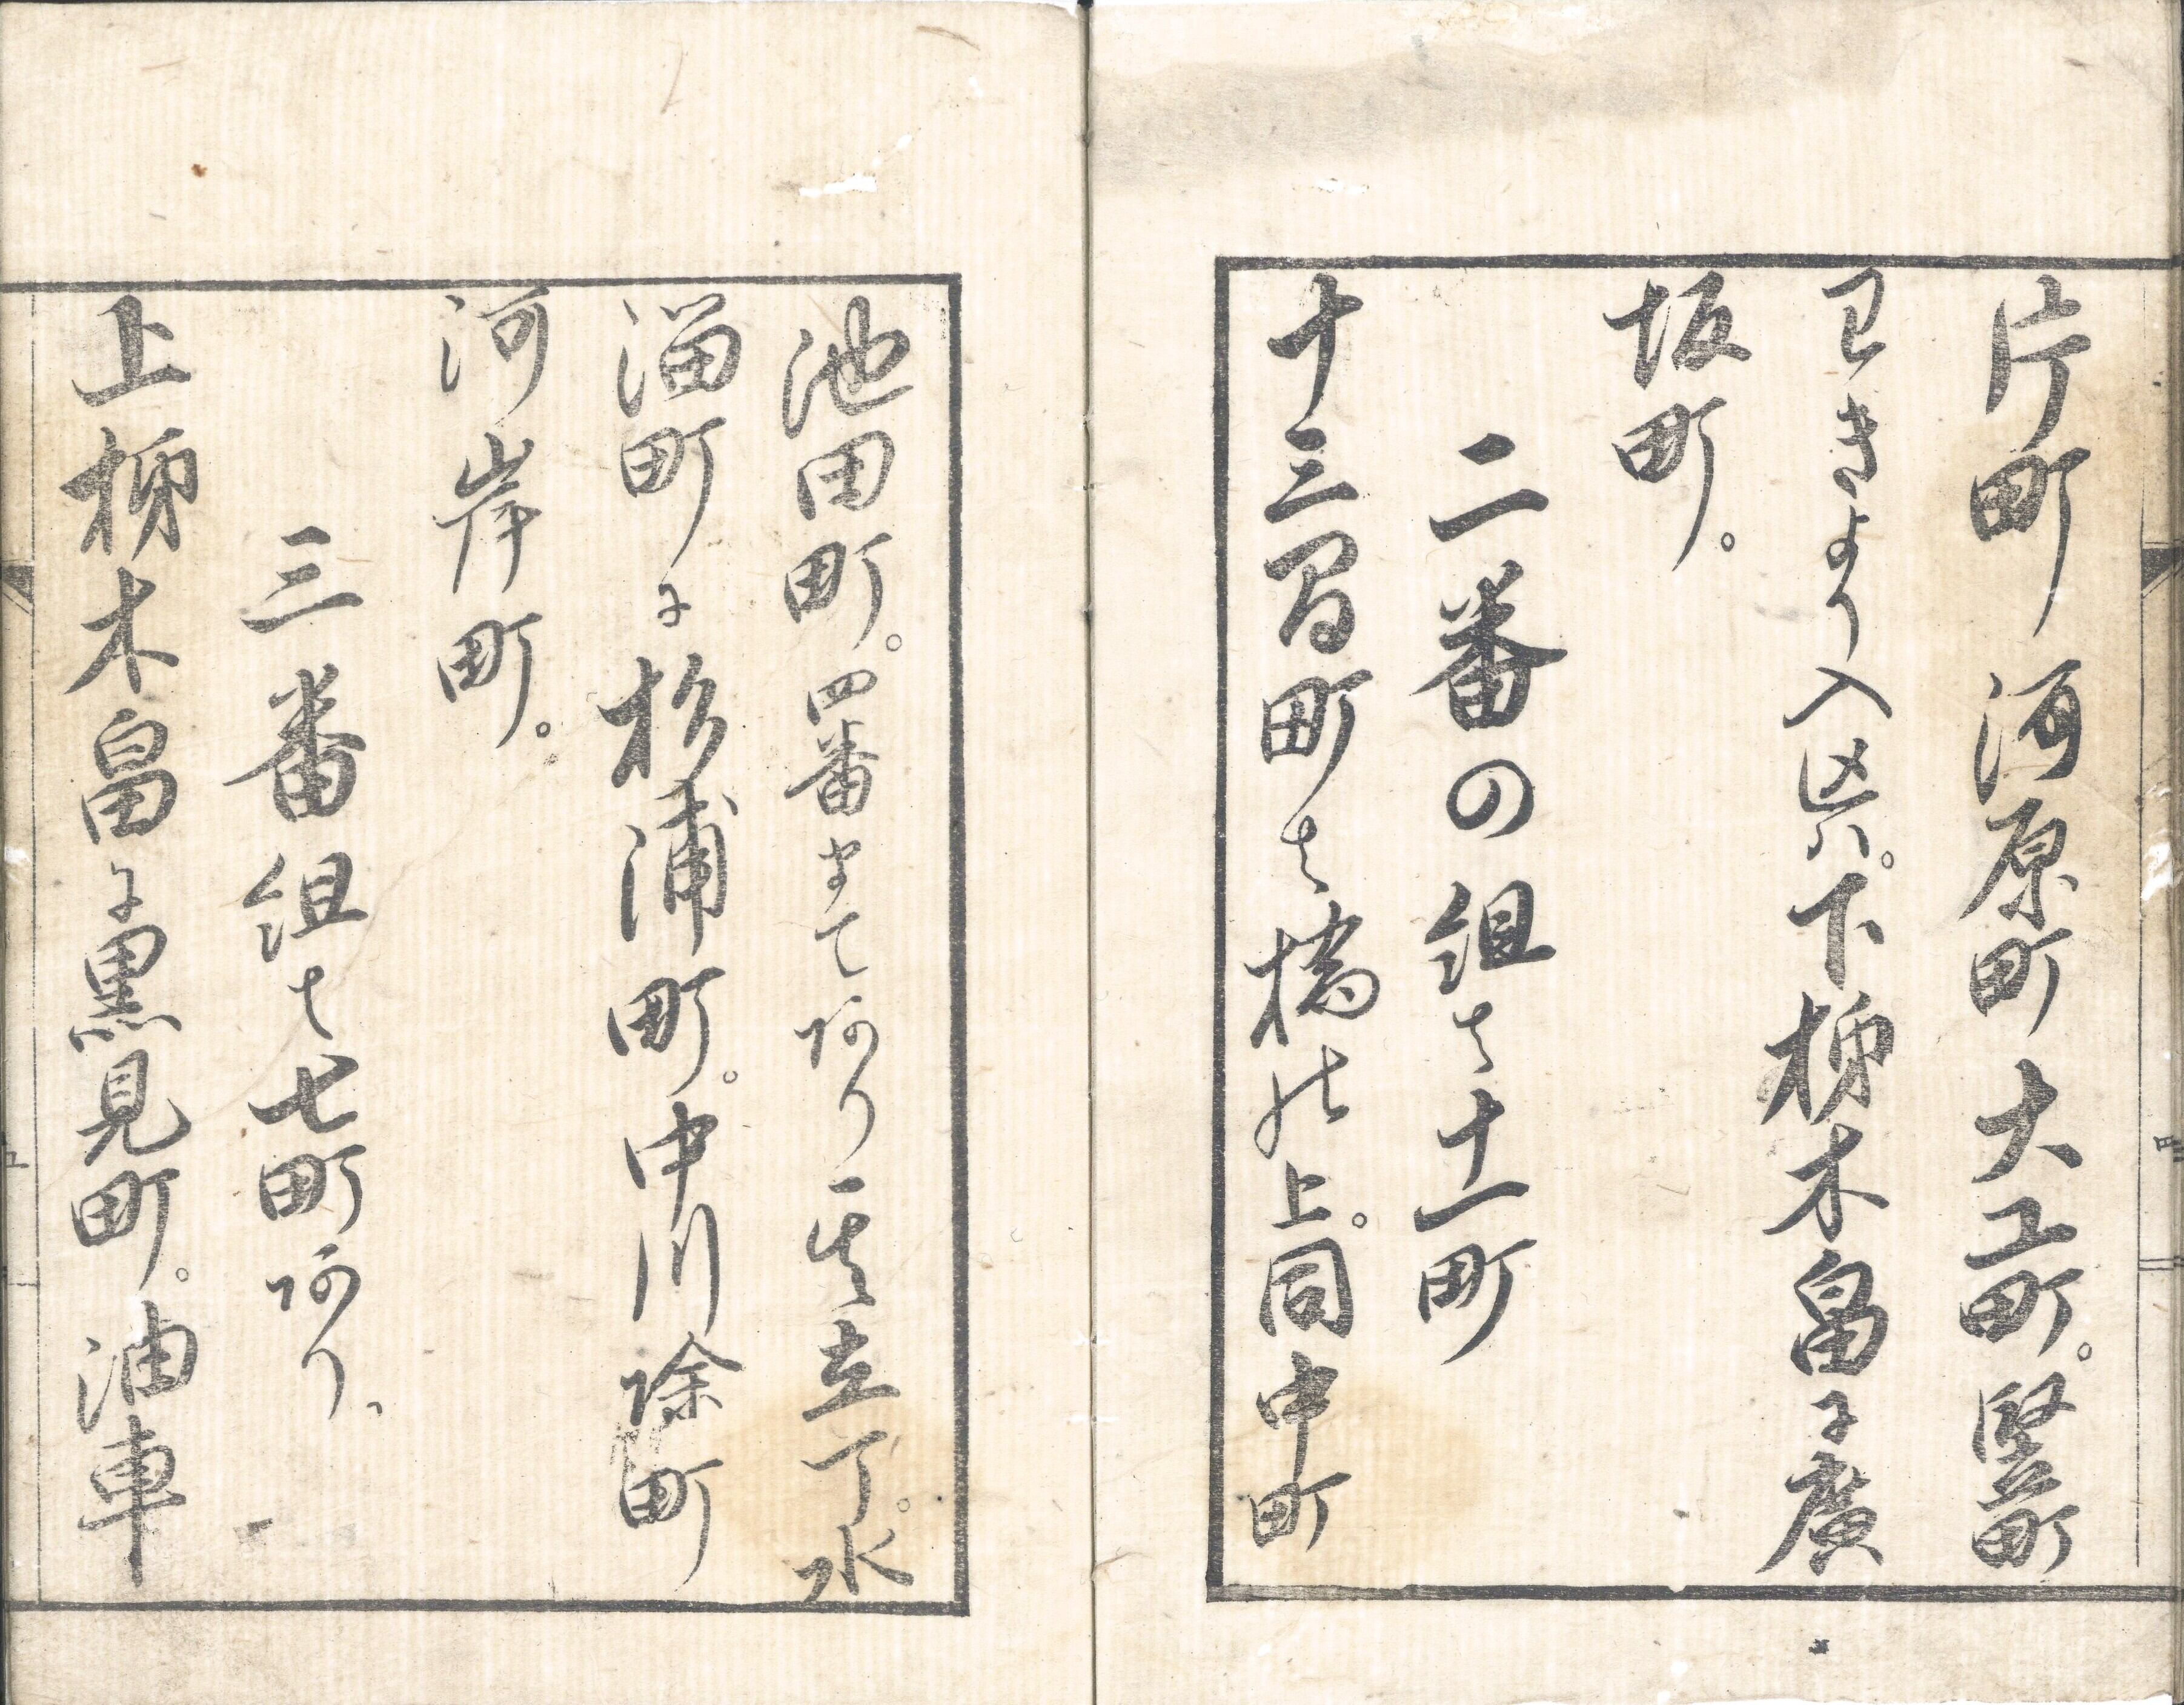 片町河原町大工町。竪町
わきより入込ハ。下柿木畠に廣
坂町。
二番の組は十一町
十三間町は橋の上。同中町
池田町。四番まであり其立丁。水
溜町に杉浦町。中川除町
河岸町。
三番組は七町あり、
上柿木畠に黒見町。油車
四
五